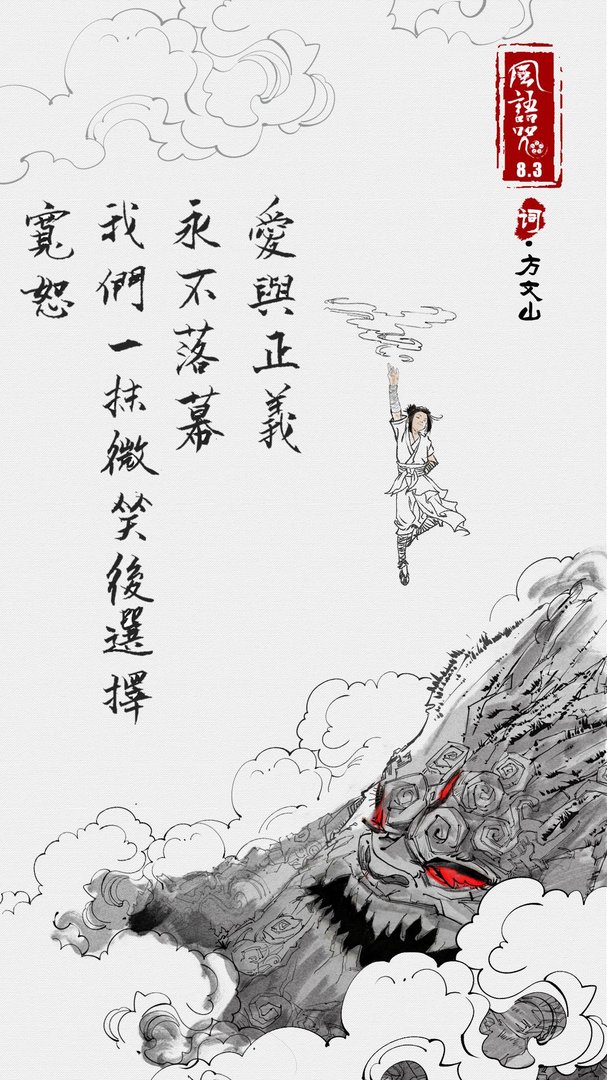 風語咒
8.3
詞·方文山
愛與正義
永不落幕
我們一抹微笑後選擇
寬恕